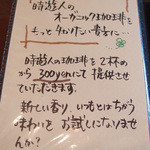 「時遊人の
オーガニック珈琲を
もっと知りたい貴方に…」
時遊人の珈琲を2杯め
から300yenにて提供させ
ていただきます。
新しい香り、いもとはちがう
味わいをお試しになりませ
んか?